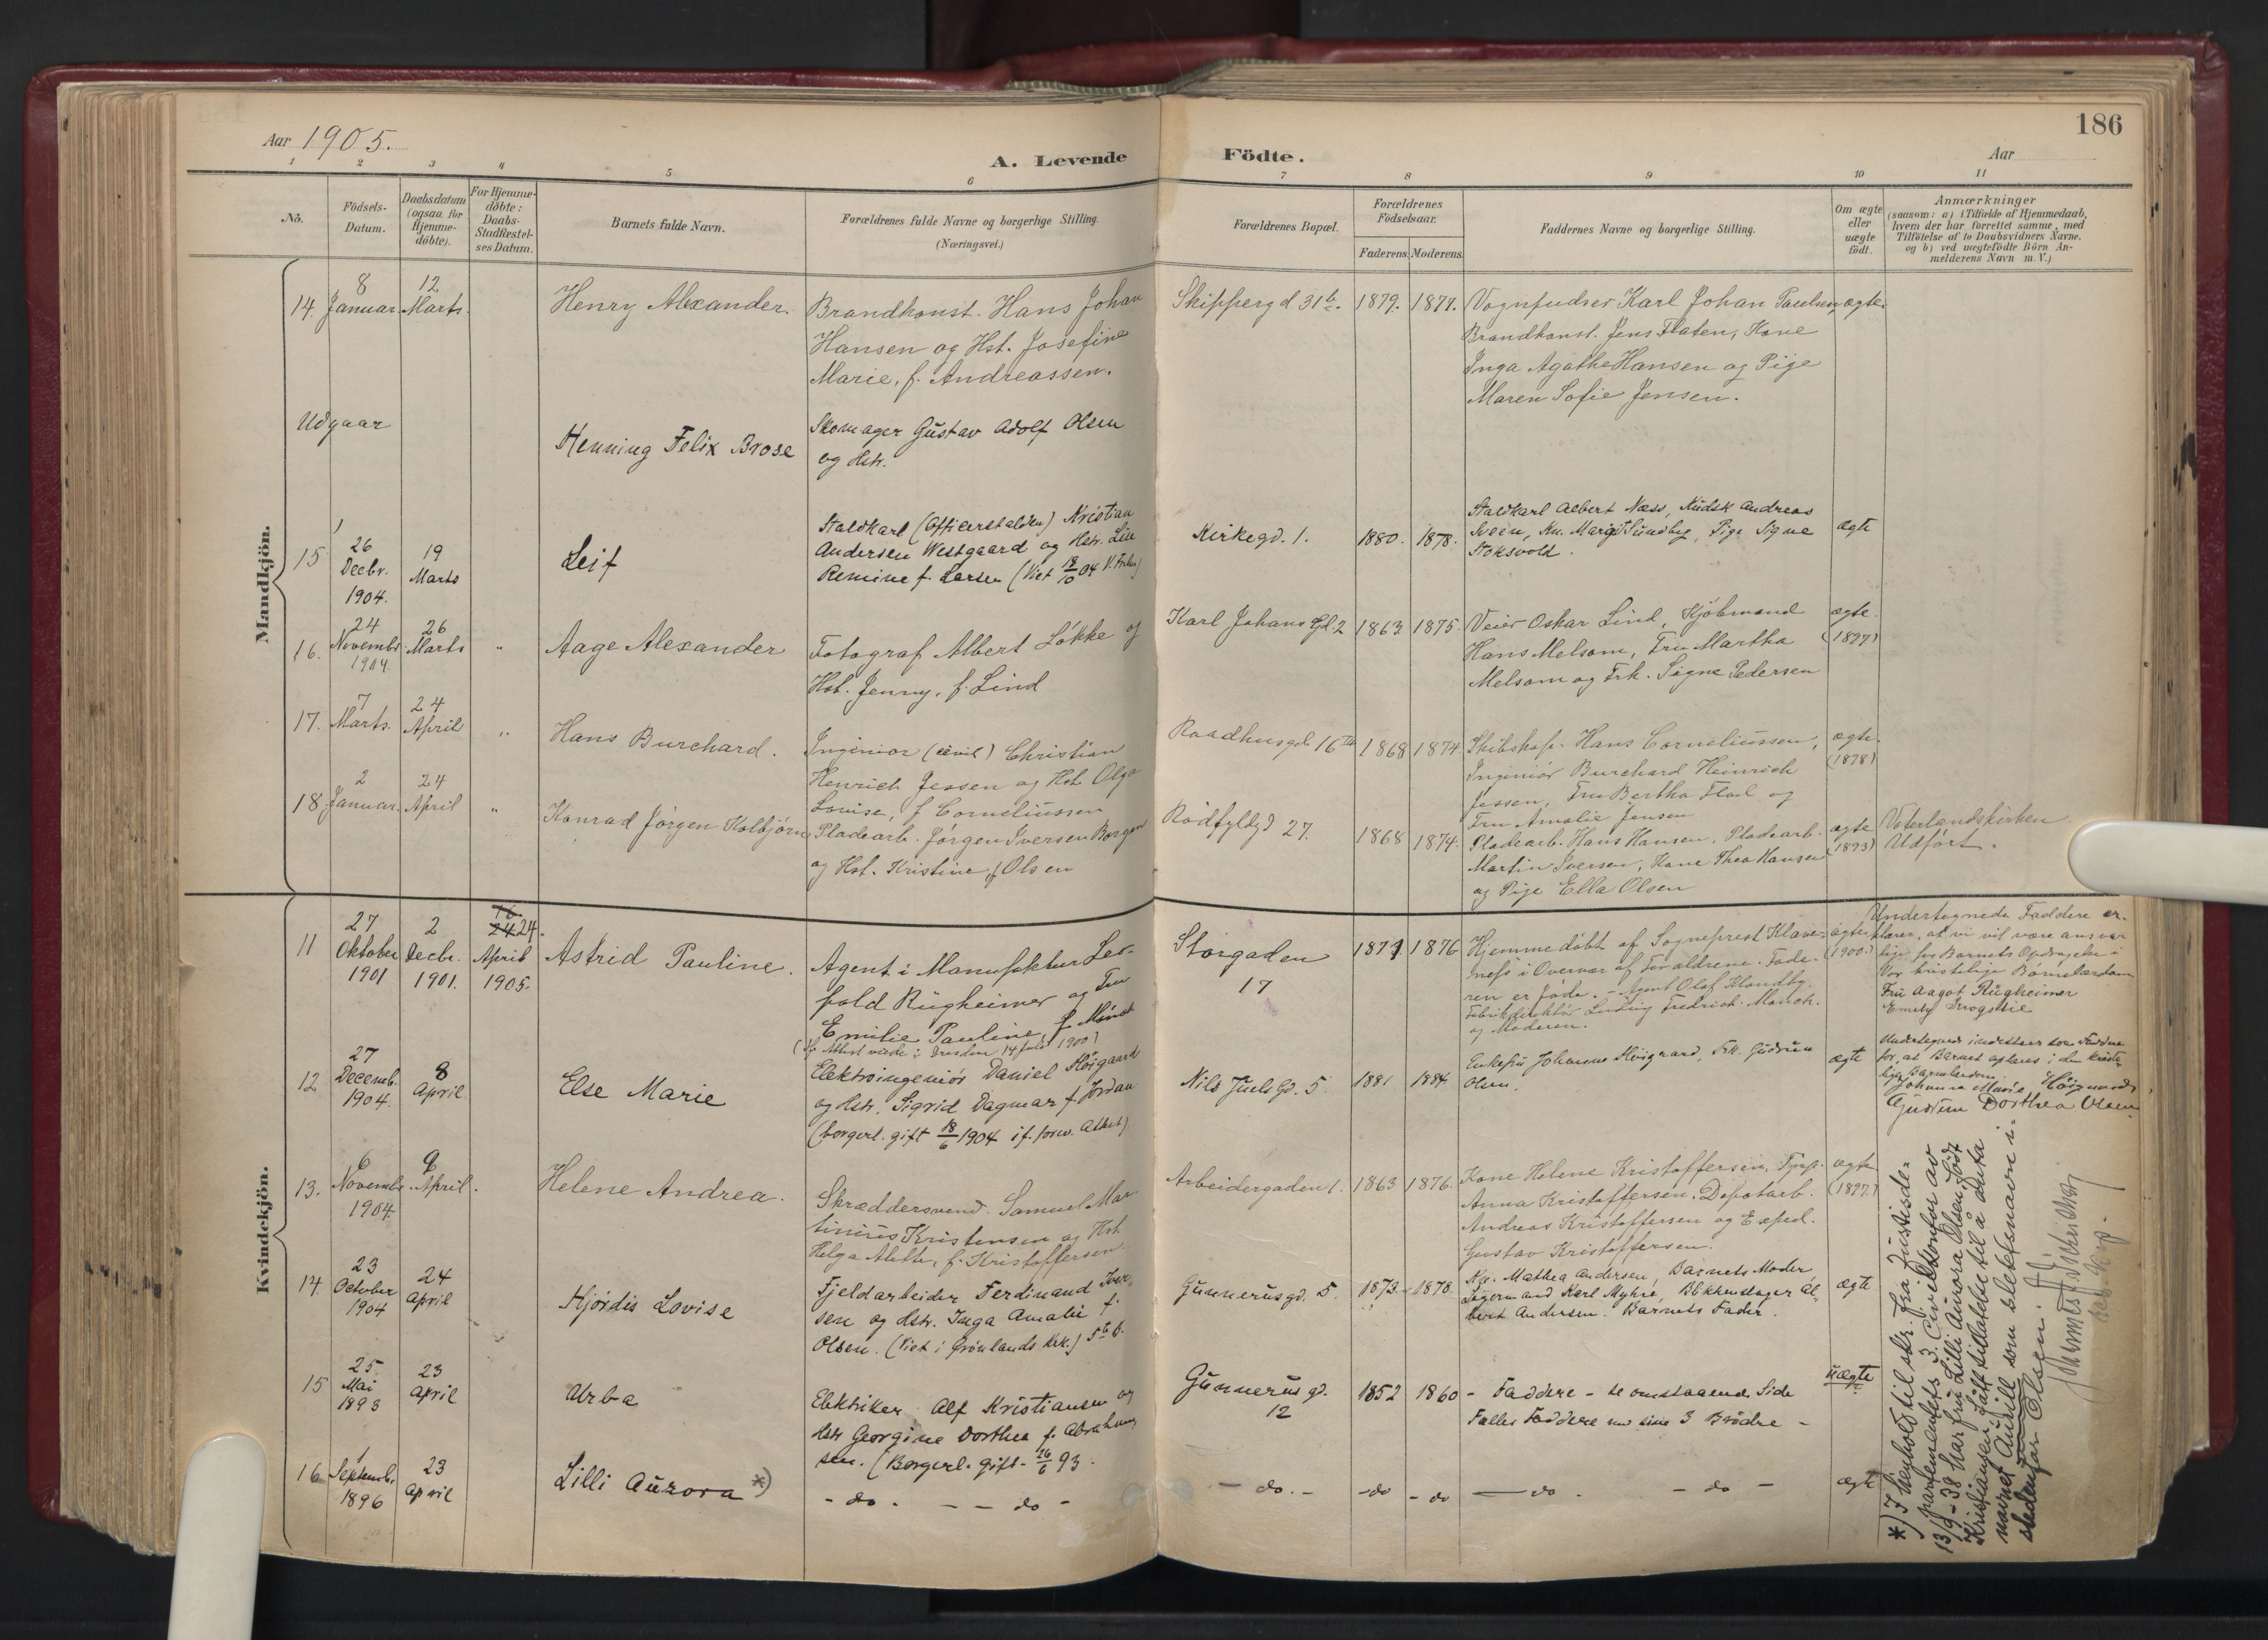 Aar 1905.
A. Levende Födte.
Aar
186
1 2 3 4 5 6 7 8 9 10 11
No.
Födsels-
Datum.
Daabsdatum
(ogsaa for
Hjemme-
döbte).
For Hjemme-
döbte:
Daabs-
Stadfæstel-
ses Datum.
Barnets fulde Navn.
Forældrenes fulde Navne og borgerlige Stilling.
(Næringsvei.)
Forældrenes Bopæl.
Forældrenes
Födselsaar.
Faderens. Moderens.
Faddernes Navne og borgerlige Stilling.
Om ægte
eller
uægte
födt.
Anmærkninger
(saasom: a) i Tilfælde af Hjemmedaab,
hvem der har forrettet samme, med
Tilföielse af to Daabsvidners Navne.
og b) ved uægtefödte Börn An-
melderens Navn m. V.)
Mandkjön.
14.
8
Januar.
12
Marts.
Henry Alexander.
Brandkonst. Hans Johan
Hansen og Hst. Josefine
Marie, f. Andreassen.
Skipperg d 31 b.
1879.
1877.
Vognpudser Karl Johan Paulsen,
Brandkonst. Jens Flaten, Kone
Inga Agathe Hansen og Pige
Maren Sofie Jensen.
ægte.
Udgaar
Henning Felix Brose
Skomager Gustav Adolf Olsen
og Hstr.
15
26
Decbr.
1904.
19
Marts
Leif
Staldkarl (Officerstalden) Kristian
Andersen Westgaard og Hstr. Lise
Remine f. Larsen (Viet 18/10 04 V. Aker)
Kirkegd. 1.
1880.
1878.
Staldkarl Albert Næss, Kudsk Andreas
Sveen, Kn. Margit Sundby, Pige Signe
Stoksvold.
ægte
16.
24
Novembr.
1904.
26
Marts
"
Aage Alexander
Fotograf Albert Løkke og
Hst. Jenny, f. Lind
Karl Johans Gd. 2
1863
1875.
Veier Oskar Lind, Kjöbmand
Hans Melsom, Fru Martha
Melsom og Frk. Signe Pedersen
ægte.
(1897)
17.
7
Marts.
24
April
"
Hans Burchard.
Ingeniør (civil) Christian
Henrich Jessen og Hst. Olga
Louise, f Corneliussen
Raadhusgd. 16
1868
1874
Skibskapt. Hans Corneliussen,
Ingeniör Burchard Heinrich
Jessen, Fru Bertha Flod og
Fru Amalie Jensen
ægte.
(1898)
18.
2
Januar.
24
April
"
Konrad Jørgen Kolbjørn
Pladearb. Jørgen Iversen Borgen
og Hst. Kristine, f Olsen
Rödfyldgd 27.
1868
1874.
Pladearb. Hans Hansen, Pladearb.
Martin Iversen, Kone Thea Hansen
og Pige Ella Olsen
ægte
(1893)
Vaterlandskirken
Udført.
Kvindekjön.
11
27
Oktober
1901
2
Decbr.
1901.
24.
April
1905.
Astrid Pauline.
Agent i Manufaktur Leo-
pold Rügheimer og Fru
Emilie Pauline, f. Münch
(If. Attest viede i Dresden 14 Juli 1900)
Storgaden
17
1871
1876
Hjemmedöbt af Sogneprest Klave-
nefs i Overvær af Forældrene. Fade-
ren er Jøde. - Agent Olaf Klandby.
Fabrikdirektör Ludvig Fredrich Münch.
og Moderen.
ægte
(1900.)
Undertegnede Faddere er-
klærer, at vi vil være ansvar
lige for Barnets Opdragelse i
Vor kristelige Børnelærdom
Fru Aagot Rügheimer
Emely Krogstie
12
27
Decemb.
1904.
8
April
Else Marie
Elektroingeniör Daniel Höigaard
og Hstr. Sigrid Dagmar f. Jordan
(borgerl. gift 18/6 1904 if. forev. Attest)
Nils Juels Gd. 5.
1881
1884.
Enkefru Johanne Höigaard, Frk. Gudrun
Olsen.
ægte
Undertegnede indestaar som Faddere
for, at Barnet opdrages i den kriste-
lige Barnelærdom.
Johanna Marie Höigaard
Gudrun Dorthea Olsen
13.
6
Novembr.
1904.
9
April.
Helene Andrea.
Skræddersvend. Samuel Mar
tinius Kristensen og Hst
Helga Mette, f. Kristoffersen
Arbeidergaden 1.
1863
1876.
Kone Helene Kristoffersen, Typ.
Anna Kristoffersen. Depotarb.
Andreas Kristoffersen og Exped.
Gustav Kristoffersen.
ægte
(1897.)
14.
23
October
1904
24
April
Hjördis Lovise
Fjeldarbeider Ferdinand Iver-
sen og Hstr. Inga Amalie f.
Olsen. (Viet i Grönlands Krk.)
Gunnerusgd. 5.
1873.
1878.
Kn. Mathea Andersen, Barnets Moder
Lagermand Karl Myhre, Blikkenslager Al-
bert Andersen. Barnets Fader.
ægte
15
25
Mai
1893
23
April
Urba
Elektriker Alf Kristiansen og
Hstr Georgine Dorthea f. Abraham-
sen. (Borgerl. gift - 26/6 93.
Gunnerusgd.
12
1852
1860
- Faddere - se omstaaende Side
Fælles Faddere med sine 3 Brödre -
uægte
16
1
Septemb.
1896
23
April
Lilli Aurora *)
- do - - - do -
- do. -
- do
- do
- do. - do -
ægte
*) I henhold til skr. fra Justisde-
partementets 3. Civilkontor av
13/9 - 38 har fru Lilli Aurora Olsen, född
Kristiansen, fått tillatelse til å anta
navnet Aurill som slektsnavn i-
stedenfor Olsen.